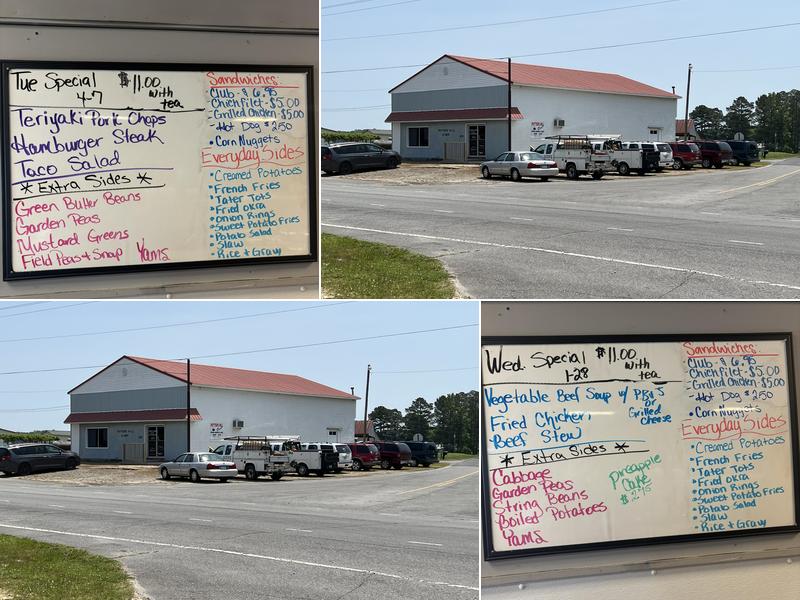 Tue Special $11.00
4-7 with tea
Teriyaki Pork Chops
Hamburger Steak
Taco Salad
* Extra Sides *
Green Butter Beans
Garden Peas
Mustard Greens
Field Peas + Snap Yams
Sandwiches:
Club - $6.95
Chich Filet - $5.00
Grilled Chicken - $5.00
Hot Dog $2.50
Corn Nuggets
Everyday Sides
Creamed Potatoes
French Fries
Tater Tots
Fried Okra
Onion Rings
Sweet Potato Fries
Potato Salad
Slaw
Rice + Gravy
Wed. Special $11.00
1-28 with tea
Vegetable Beef Soup w/ PB+J's
or
Grilled
cheese
Fried Chicken
Beef Stew
* Extra Sides *
Cabbage
Garden Peas
String Beans
Boiled Potatoes
Yams
Pineapple
Cake
$2.95
Sandwiches:
Club - $6.95
Chich Filet - $5.00
Grilled Chicken - $5.00
Hot Dog $2.50
Corn Nuggets
Everyday Sides
Creamed Potatoes
French Fries
Tater Tots
Fried Okra
Onion Rings
Sweet Potato Fries
Potato Salad
Slaw
Rice + Gravy